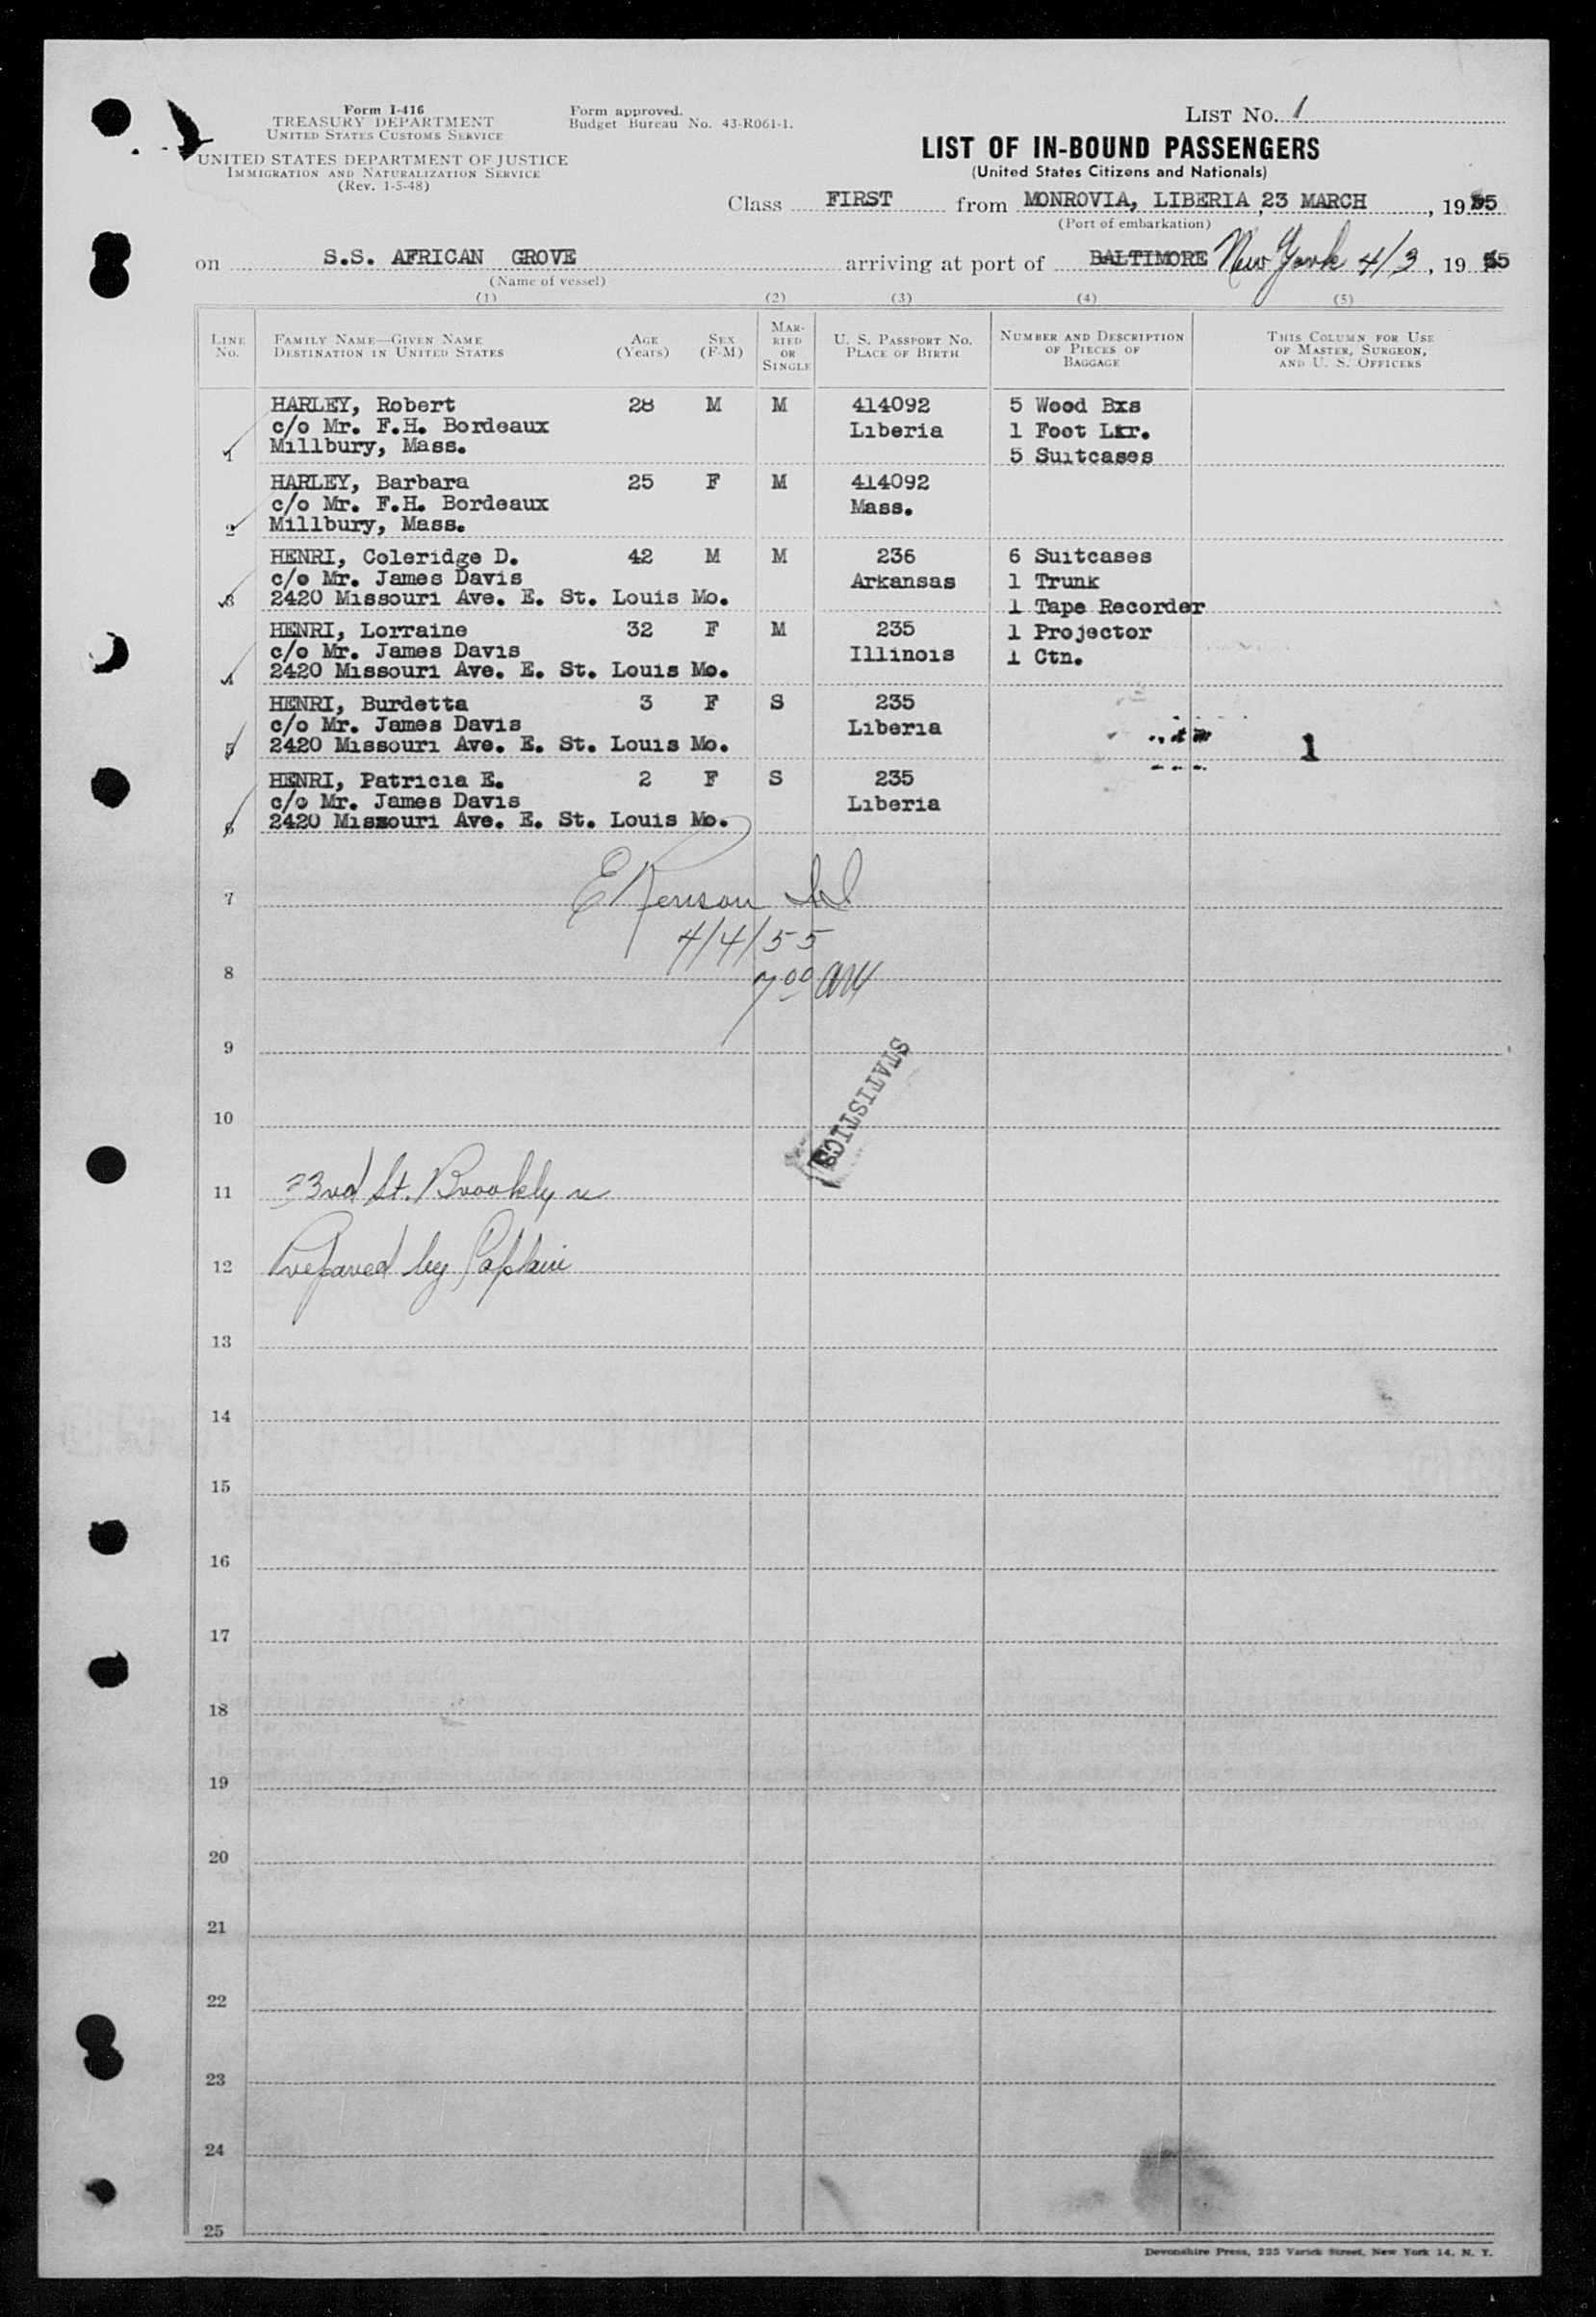 Form I-416
TREASURY DEPARTMENT
UNITED STATES CUSTOMS SERVICE
UNITED STATES DEPARTMENT OF JUSTICE
IMMIGRATION AND NATURALIZATION SERVICE
(Rev. 1-5-48)
Form approved.
Budget Bureau No. 43-R061-1.
LIST NO. 1
LIST OF IN-BOUND PASSENGERS
(United States Citizens and Nationals)
Class FIRST from MONROVIA, LIBERIA, 23 MARCH, 1955
(Port of embarkation)
on S.S. AFRICAN GROVE arriving at port of BALTIMORE New York 4/3, 1955
(Name of vessel)
(1) (2) (3) (4) (5)
LINE NO. FAMILY NAME—GIVEN NAME DESTINATION IN UNITED STATES AGE (Years) SEX (F-M) MARRIED OR SINGLE U. S. PASSPORT NO. PLACE OF BIRTH NUMBER AND DESCRIPTION OF PIECES OF BAGGAGE THIS COLUMN FOR USE OF MASTER, SURGEON, AND U. S. OFFICERS
HARLEY, Robert 28 M M 414092 5 Wood Bxs
c/o Mr. F.H. Bordeaux Liberia 1 Foot Lkr.
1 Millbury, Mass. 5 Suitcases
HARLEY, Barbara 25 F M 414092
c/o Mr. F.H. Bordeaux Mass.
2 Millbury, Mass.
HENRI, Coleridge D. 42 M M 236 6 Suitcases
c/o Mr. James Davis Arkansas 1 Trunk
3 2420 Missouri Ave. E. St. Louis Mo. 1 Tape Recorder
HENRI, Lorraine 32 F M 235 1 Projector
c/o Mr. James Davis Illinois 1 Ctn.
4 2420 Missouri Ave. E. St. Louis Mo.
HENRI, Burdetta 3 F S 235
c/o Mr. James Davis Liberia
5 2420 Missouri Ave. E. St. Louis Mo. 1
HENRI, Patricia E. 2 F S 235
c/o Mr. James Davis Liberia
6 2420 Missouri Ave. E. St. Louis Mo.
7
4/4/55
8
7 00 AM
9
STATISTICS
10
11 33rd St. Brooklyn
12 Prepared by Captain
13
14
15
16
17
18
19
20
21
22
23
24
25
Devonshire Press, 225 Varick Street, New York 14, N. Y.